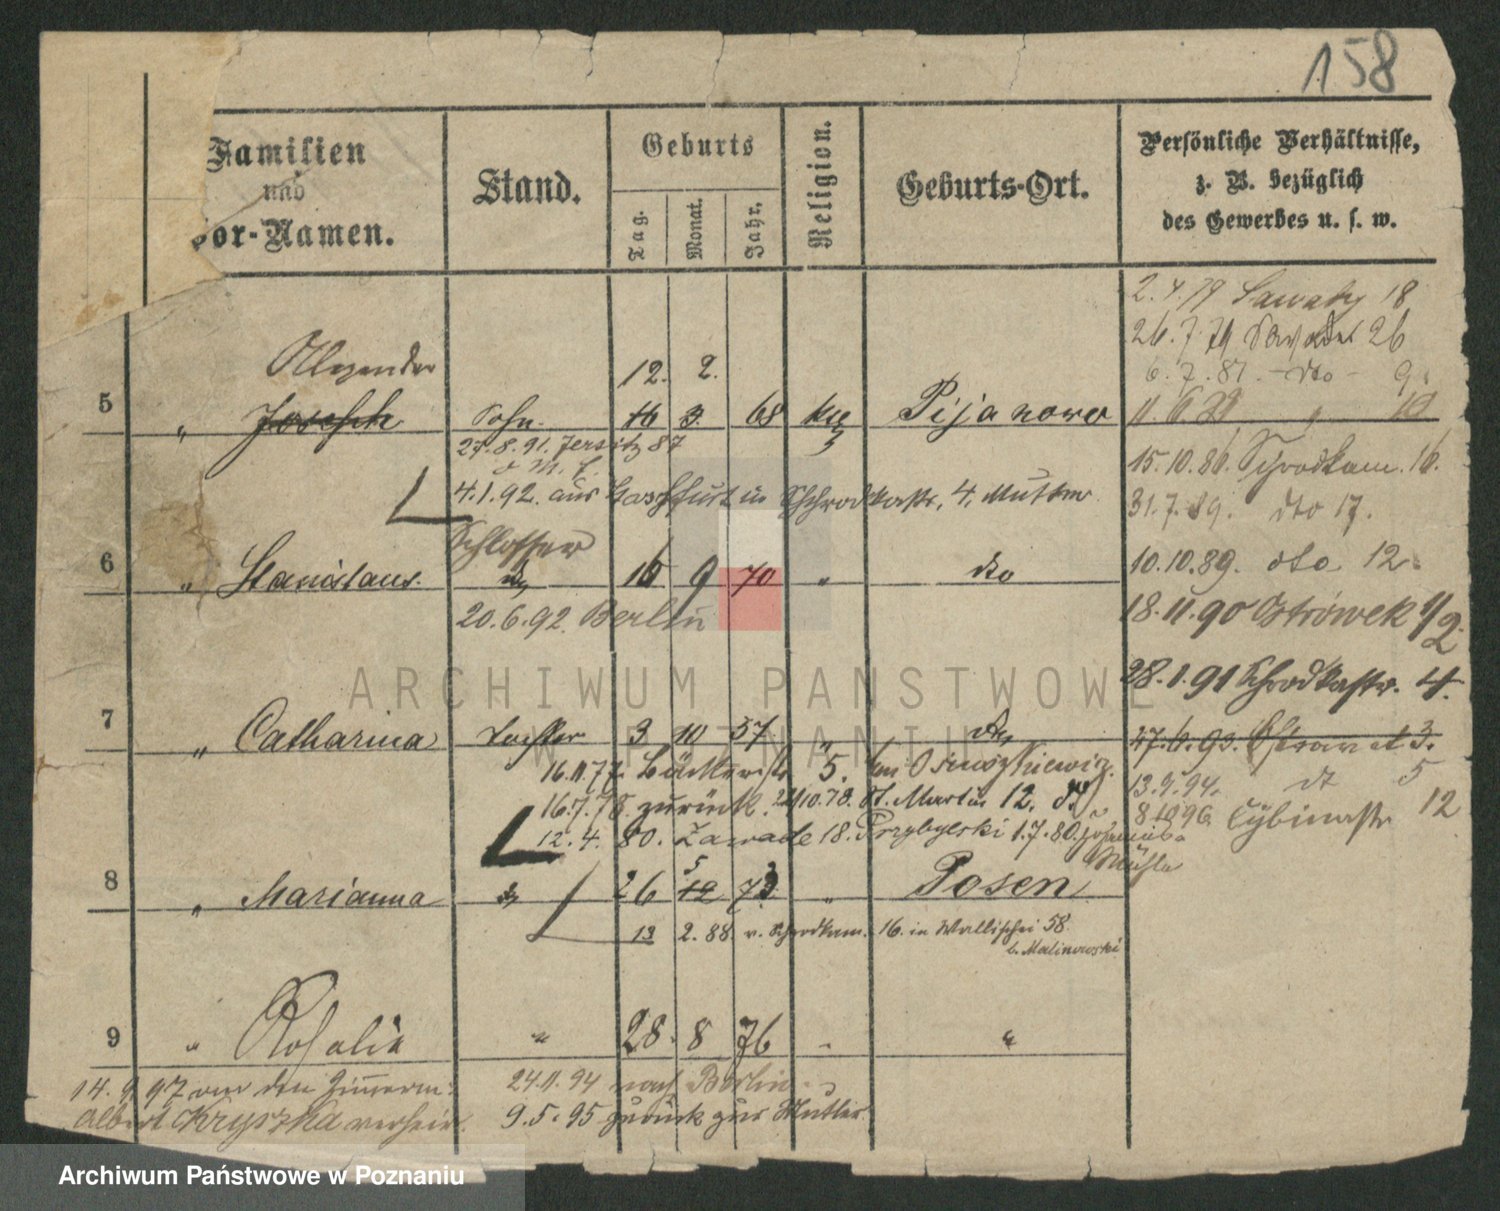 158
Familien
und
Vor-Namen.
Stand.
Geburts
Tag.
Monat.
Jahr.
Religion.
Geburts-Ort.
Persönliche Verhältnisse,
z. B. bezüglich
des Gewerbes u. s. w.
2.4.79 18
26.7.79 26
6.7.81. dto 9.
Alexander 12. 2.
5 " Joseph Sohn 16 3. 68 Pijanowo
27.8.91. Jersitz 87
15.10.86. Schrodkam. 16.
4.1.92. aus in Schrodkastr. 4. Mutter
31.7.89. dto 17.
Schlosser
6 " Stanislaus. 16 9 70 " dto
10.10.89. dto 12.
20.6.92. Berlin
18.11.90 Ostrówek 1/2
28.1.91 Schrodkastr. 4.
ARCHIWUM PAŃSTWOWE
W POZNANIU
7 " Catharina Tochter 3 10 57 " dto
27.6.93. 3.
16.11.77. 5.
13.9.94. dt 5
16.7.78. zurück. St. Martin 12.
8.10.96 Cybinastr 12
12.4.80. Zawade 18. Przybylski 1.7.80. Johannis-
Mühle
5
8 " Marianna 26 12 73 " Posen
13 2.88 v. Schrodkam. 16. in Wallischei 58
b. Malinowski
9 " Rosalie " 28. 8 76 "
14.9.97 an den Zimmerm:
24.11.94 nach Berlin
Albert Kryszka verheir.
9.5.95 zurück zur Mutter
Archiwum Państwowe w Poznaniu